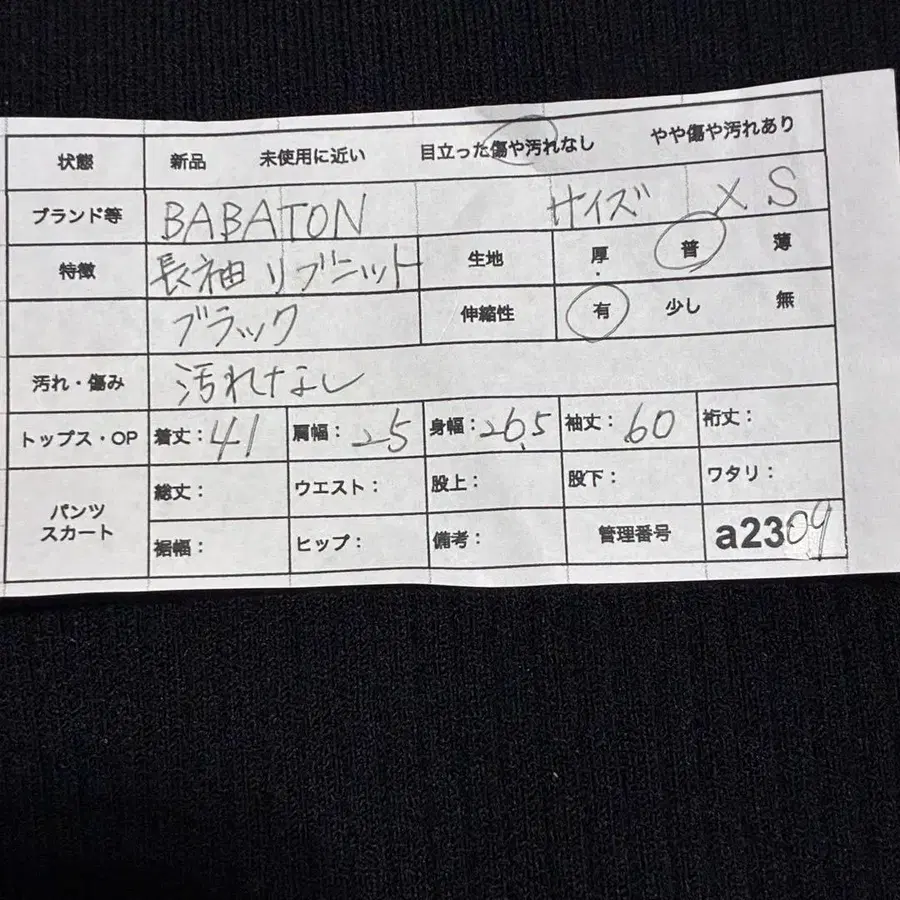 状態 新品 未使用に近い 目立った傷や汚れなし やや傷や汚れあり
ブランド等 BABATON サイズ XS
特徴 長袖 リブニット 生地 厚 普 薄
ブラック 伸縮性 有 少し 無
汚れ・傷み 汚れなし
トップス・OP 着丈:41 肩幅:25 身幅:26.5 袖丈:60 裄丈:
パンツ スカート 総丈: ウエスト: 股上: 股下: ワタリ:
裾幅: ヒップ: 備考: 管理番号 a2309